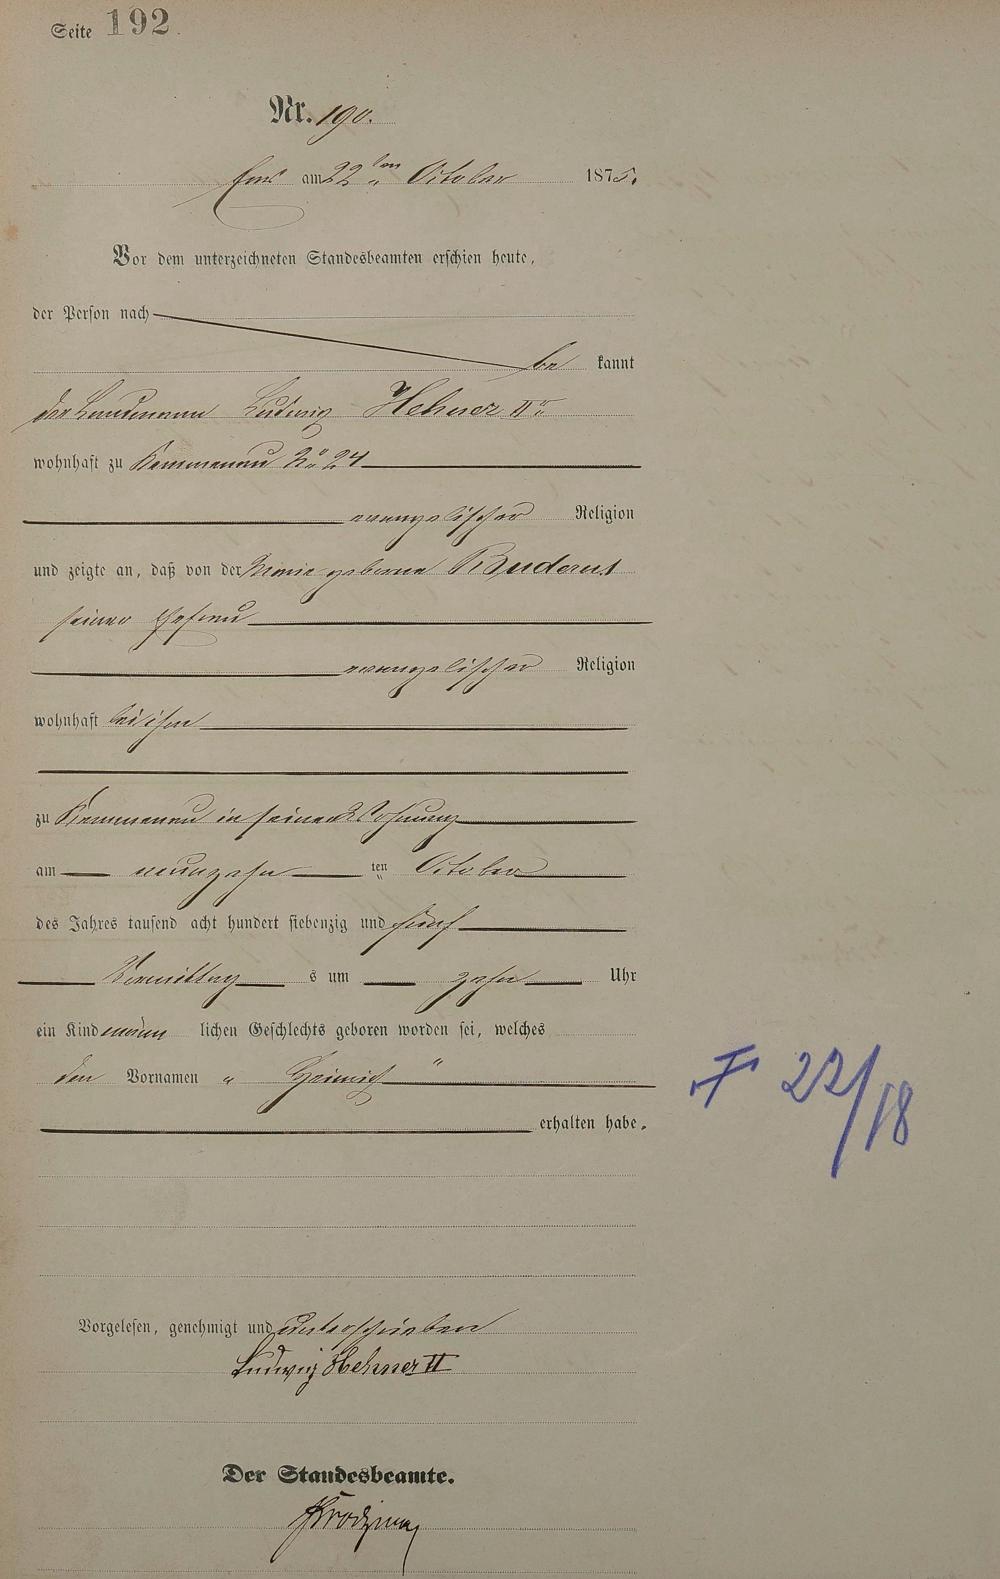 Seite 192.
Nr. 190.
Ems am 22ten October 1875.
Vor dem unterzeichneten Standesbeamten erschien heute,
der Person nach
be kannt
der Landmann Ludwig Hehner IIr
wohnhaft zu Kemmenau No 24
evangelischer Religion
und zeigte an, daß von der Marie geborene Buderus
seiner Ehefrau
evangelischer Religion
wohnhaft bei ihm
zu Kemmenau in seiner Wohnung
am neunzehn ten October
des Jahres tausend acht hundert siebenzig und fünf
Vormittag s um zehn Uhr
ein Kind männ lichen Geschlechts geboren worden sei, welches
den Vornamen " Heinrich "
erhalten habe.
F 22/18
Vorgelesen, genehmigt und unterschrieben
Ludwig Hehner II
Der Standesbeamte.